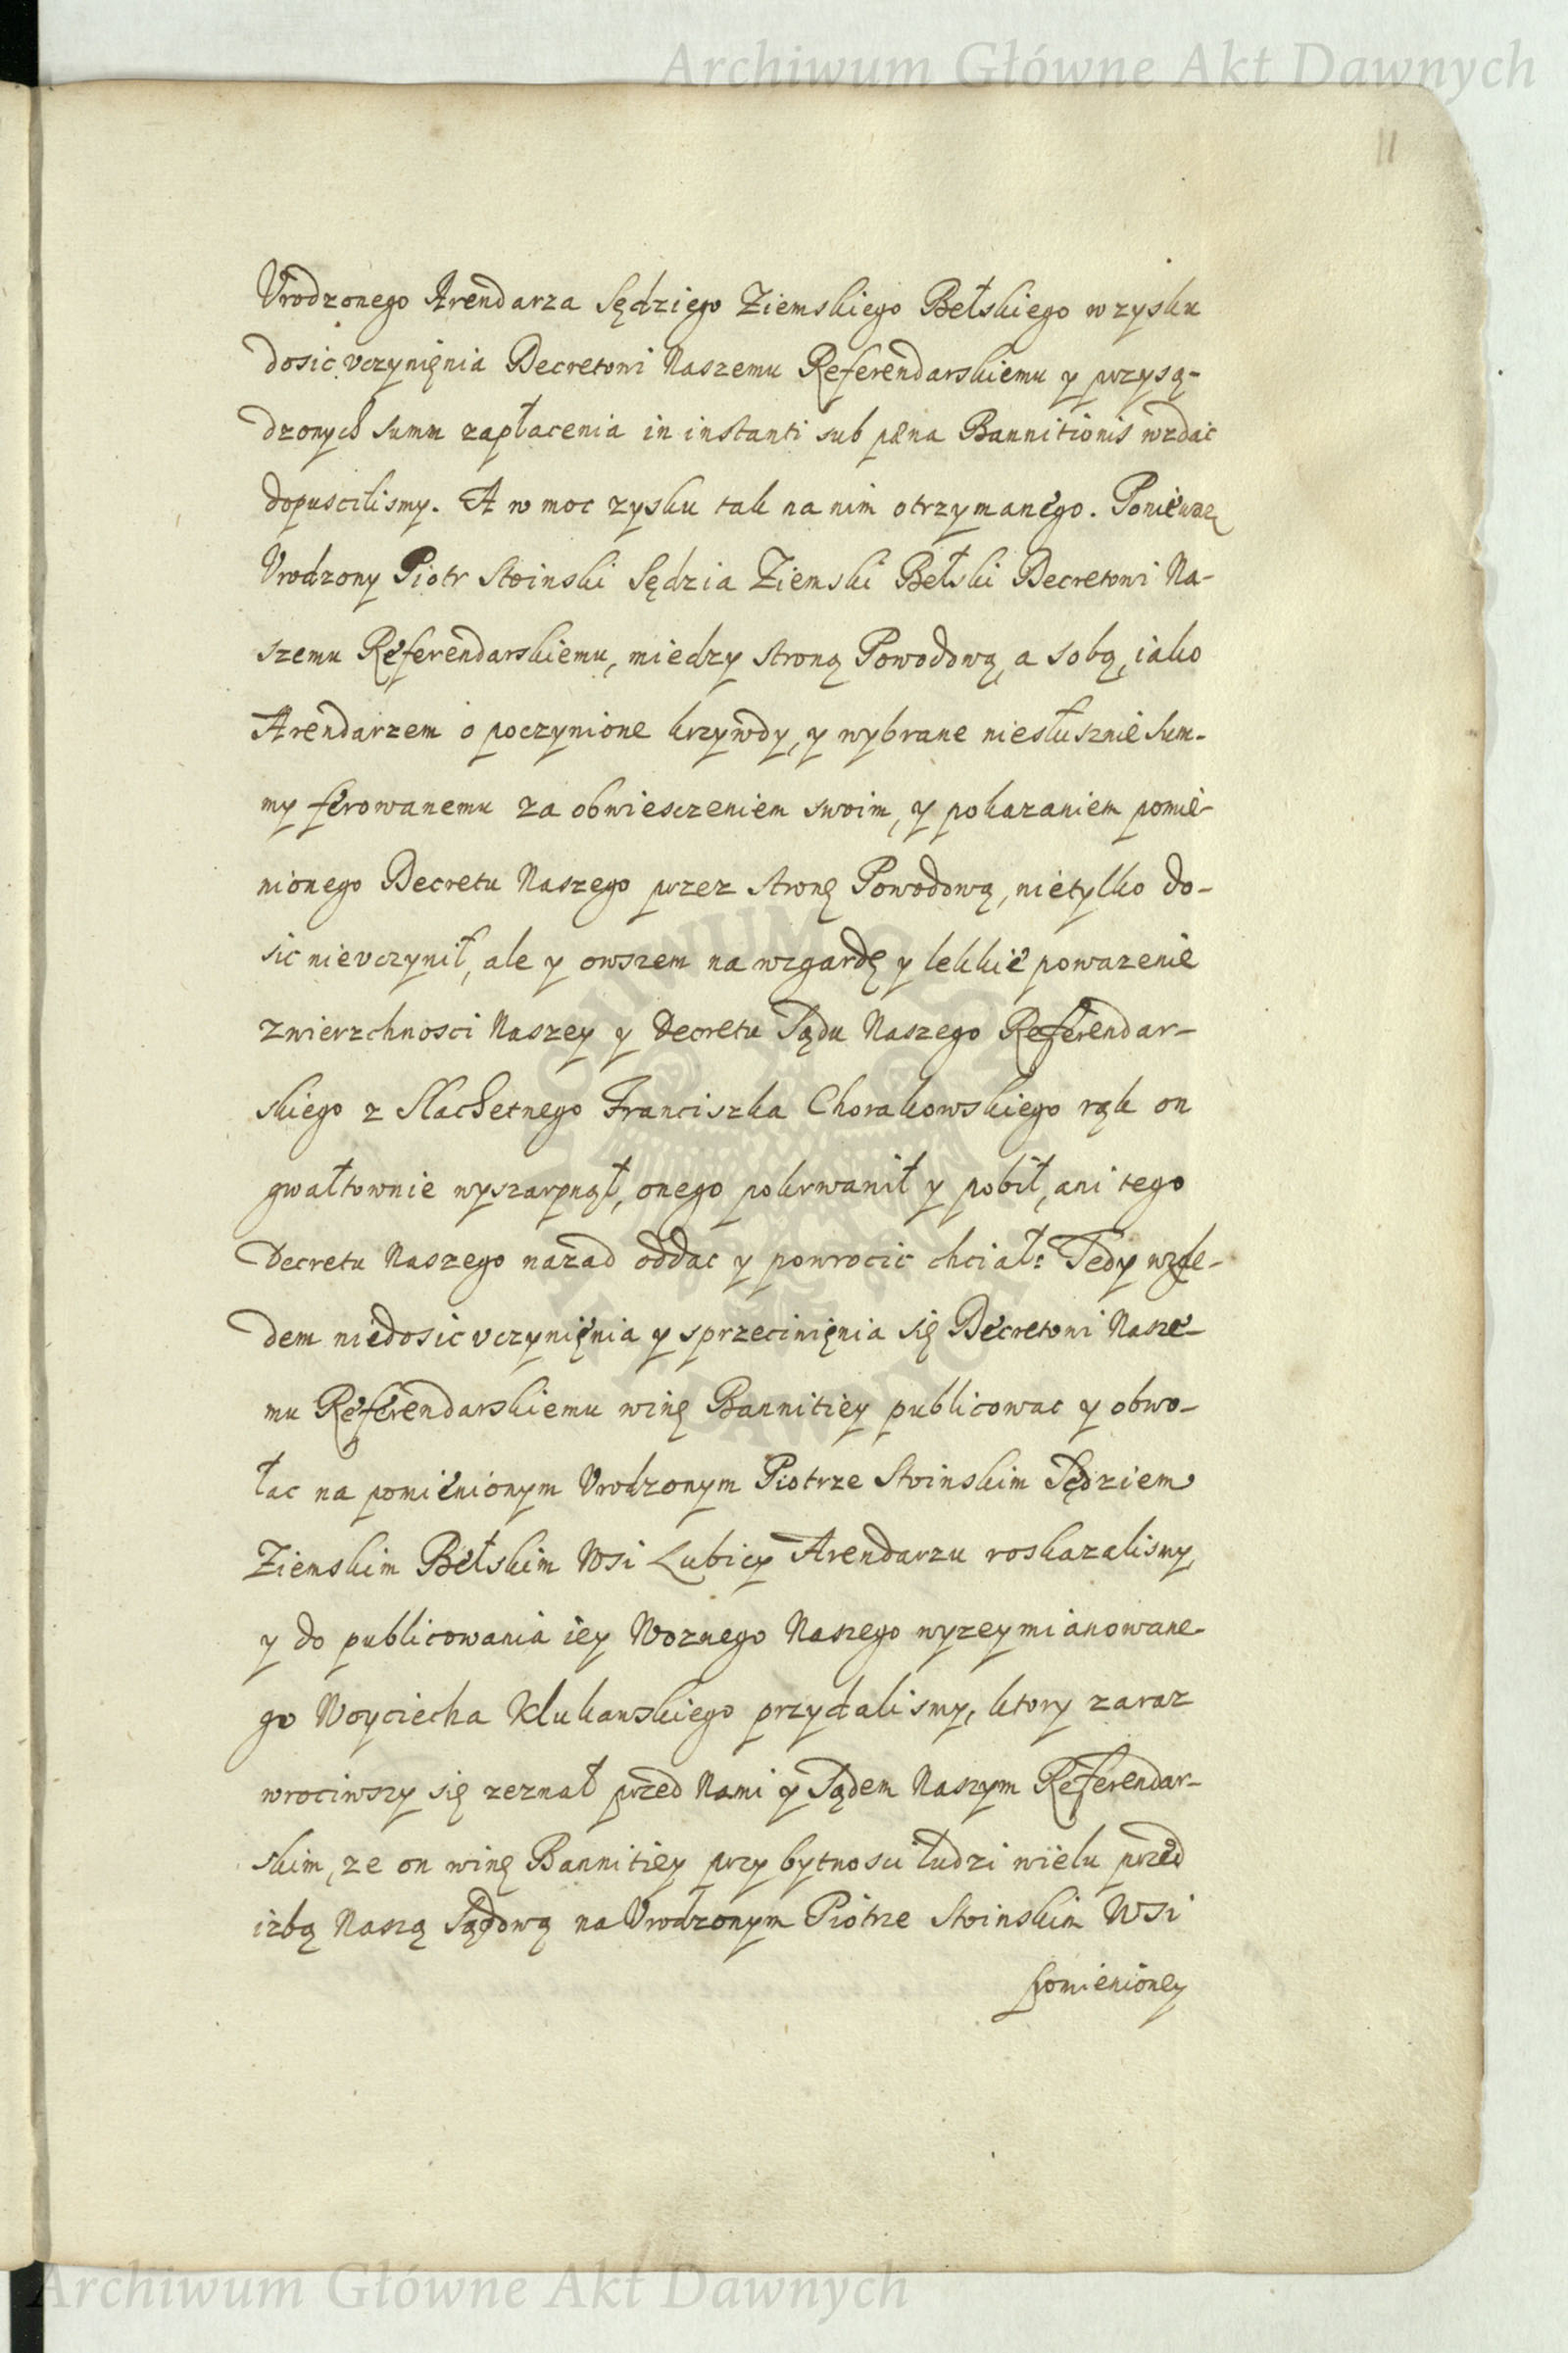 Archiwum Główne Akt Dawnych
11
Vrodzonego Arendarza Sędziego Ziemskiego Bełskiego w zysku
dosic vczynięnia Decretowi Naszemu Referendarskiemu y przysą-
dzonych summ zapłacenia in instanti sub pæna Bannitionis wzdac
dopuscilismy. A w moc zysku tak na nim otrzymanego. Ponieważ
Vrodzony Piotr Stoinski Sędzia Ziemski Bełski Decretowi Na-
szemu Referendarskiemu, miedzy stroną Powodową, a sobą, iako
Arendarzem o poczynione krzywdy, y wybrane niesłusznie sum-
my ferowanemu za obwiesczeniem swoim, y pokazaniem pomie-
nionego Decretu Naszego przez stronę Powodową, nietylko do-
sic nievczynił, ale y owszem na wzgardę y lekkie powazenie
zwierzchnosci Naszey y Decretu Sądu Naszego Referendar-
skiego z Slachetnego Franciszka Chorakowskiego rąk on
gwałtownie wyszarpnął, onego pokrwanił y pobił, ani tego
Decretu Naszego nazad oddac y powrocic chciał: Tedy wzglę-
dem niedosic vczynięnia y sprzeciwięnia się Decretowi Nasze-
mu Referendarskiemu winę Bannitiey publicowac y obwo-
łac na pomienionym Vrodzonym Piotrze Stoinskim Sędziem
Ziemskim Bełskim Wsi Lubicy Arendarzu roskazalismy,
y do publicowania iey Woznego Naszego wyzey mianowane-
go Woyciecha Klukawskiego przydalismy, ktory zaraz
wrociwszy się zeznał przed Nami y Sądem Naszym Referendar-
skim, ze on winę Bannitiey przy bytnosci ludzi wielu przed
izbą Naszą Sądową na Vrodzonym Piotrze Stoinskim Wsi
pomienioney
Archiwum Główne Akt Dawnych